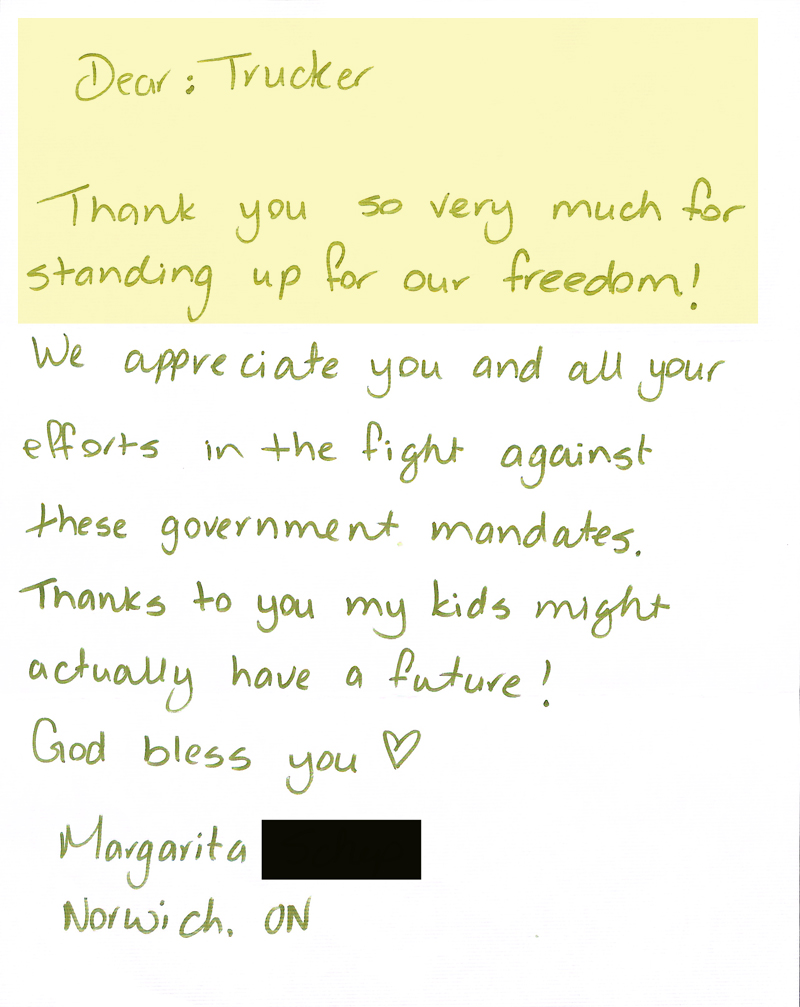 Dear; Trucker
Thank you so very much for
standing up for our freedom!
We appreciate you and all your
efforts in the fight against
these government mandates.
Thanks to you my kids might
actually have a future!
God bless you ♡
Margarita
Norwich, ON